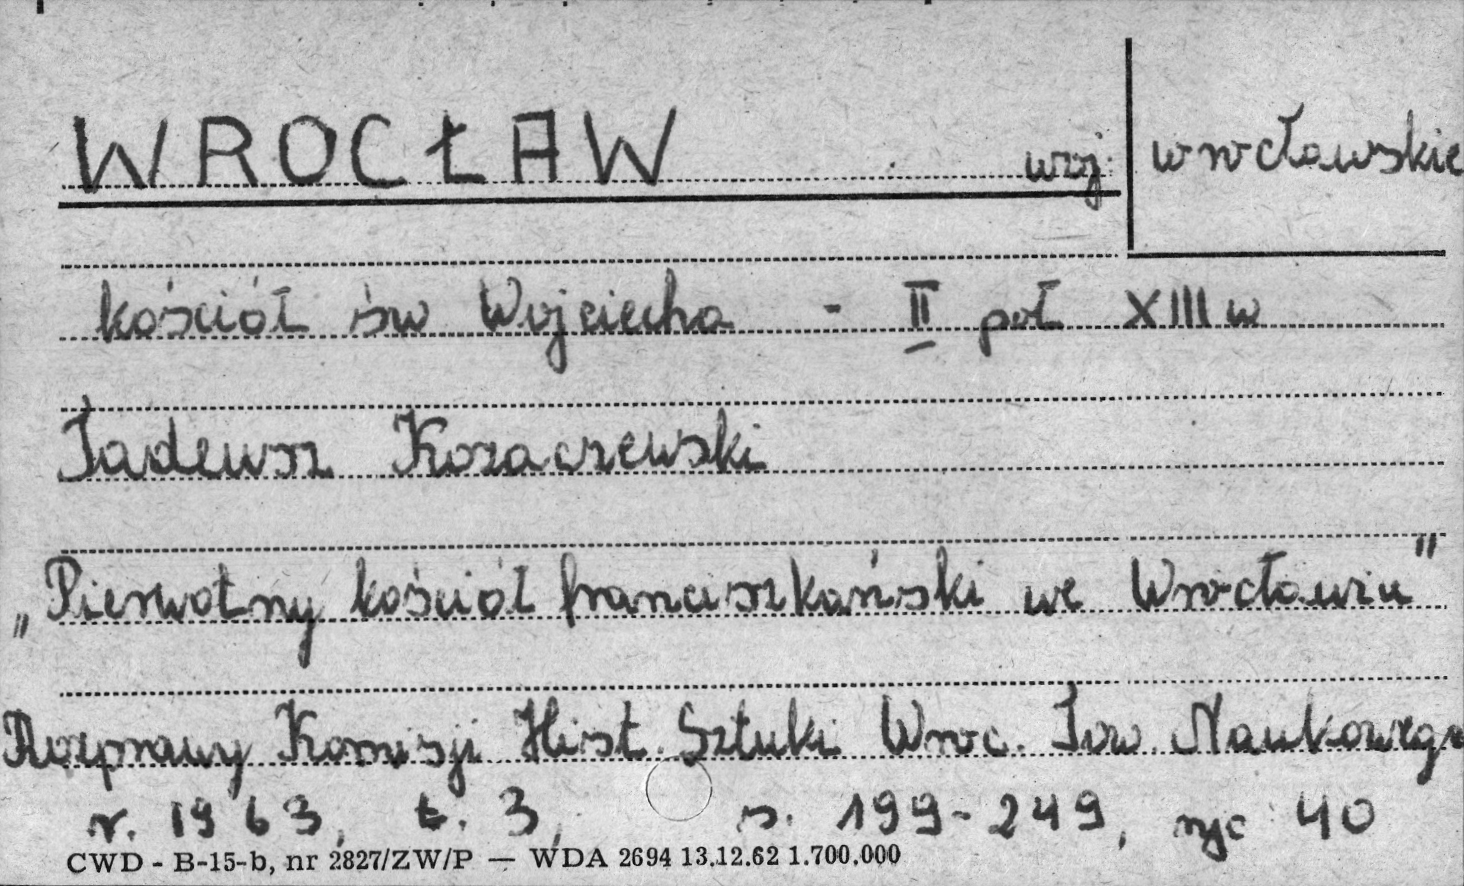 WROCŁAW woj. wrocławskie
kościół św Wojciecha - II poł XIII w
Tadeusz Kozaczewski
„Pierwotny kościół franciszkański we Wrocławiu"
Rozprawy Komisji Hist. Sztuki Wroc. Tow Naukowego
r. 1963, t. 3, s. 199-249, ryc 40
CWD - B-15-b, nr 2827/ZW/P — WDA 2694 13.12.62 1.700.000